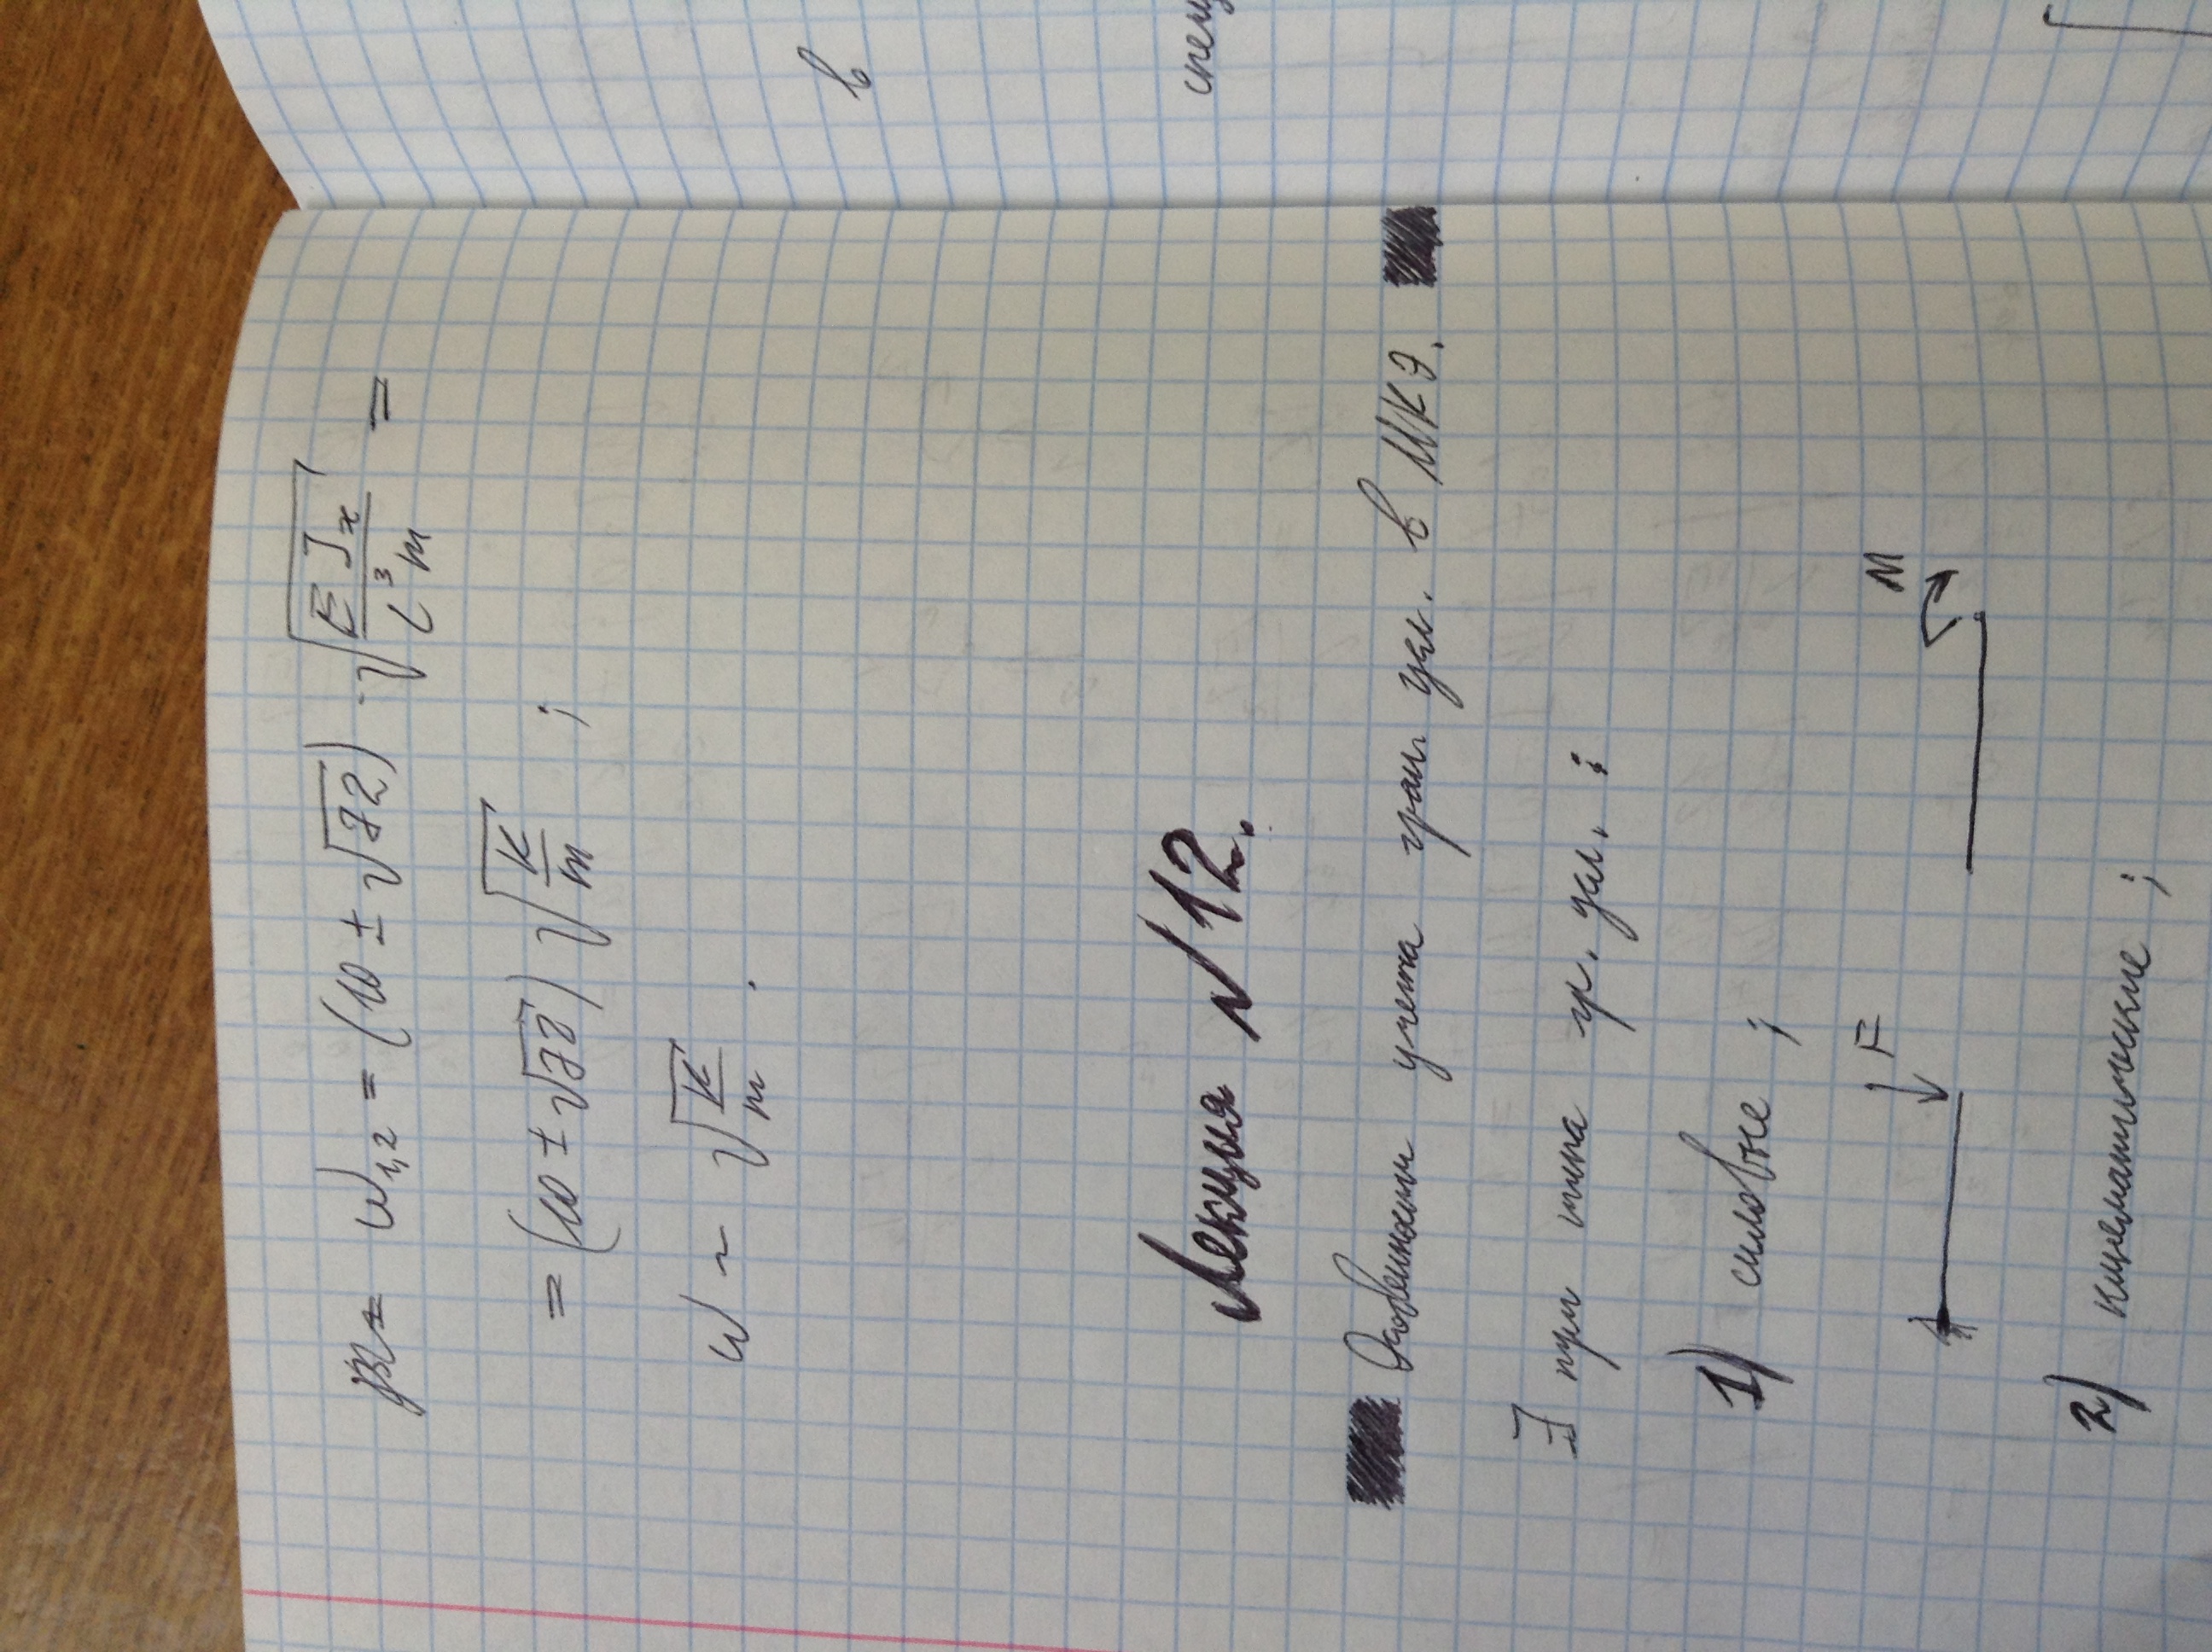 ω₁,₂ = (10 ± √72) · √(EJₓ / l³m) =
= (10 ± √72) √(K/m) ;
ω ~ √(K/m) .
Лекция №12.
Особенности учета гран усл. в МКЭ.
∃ три типа гр. усл. :
1) силовые ;
F M
2) кинематические ;
в